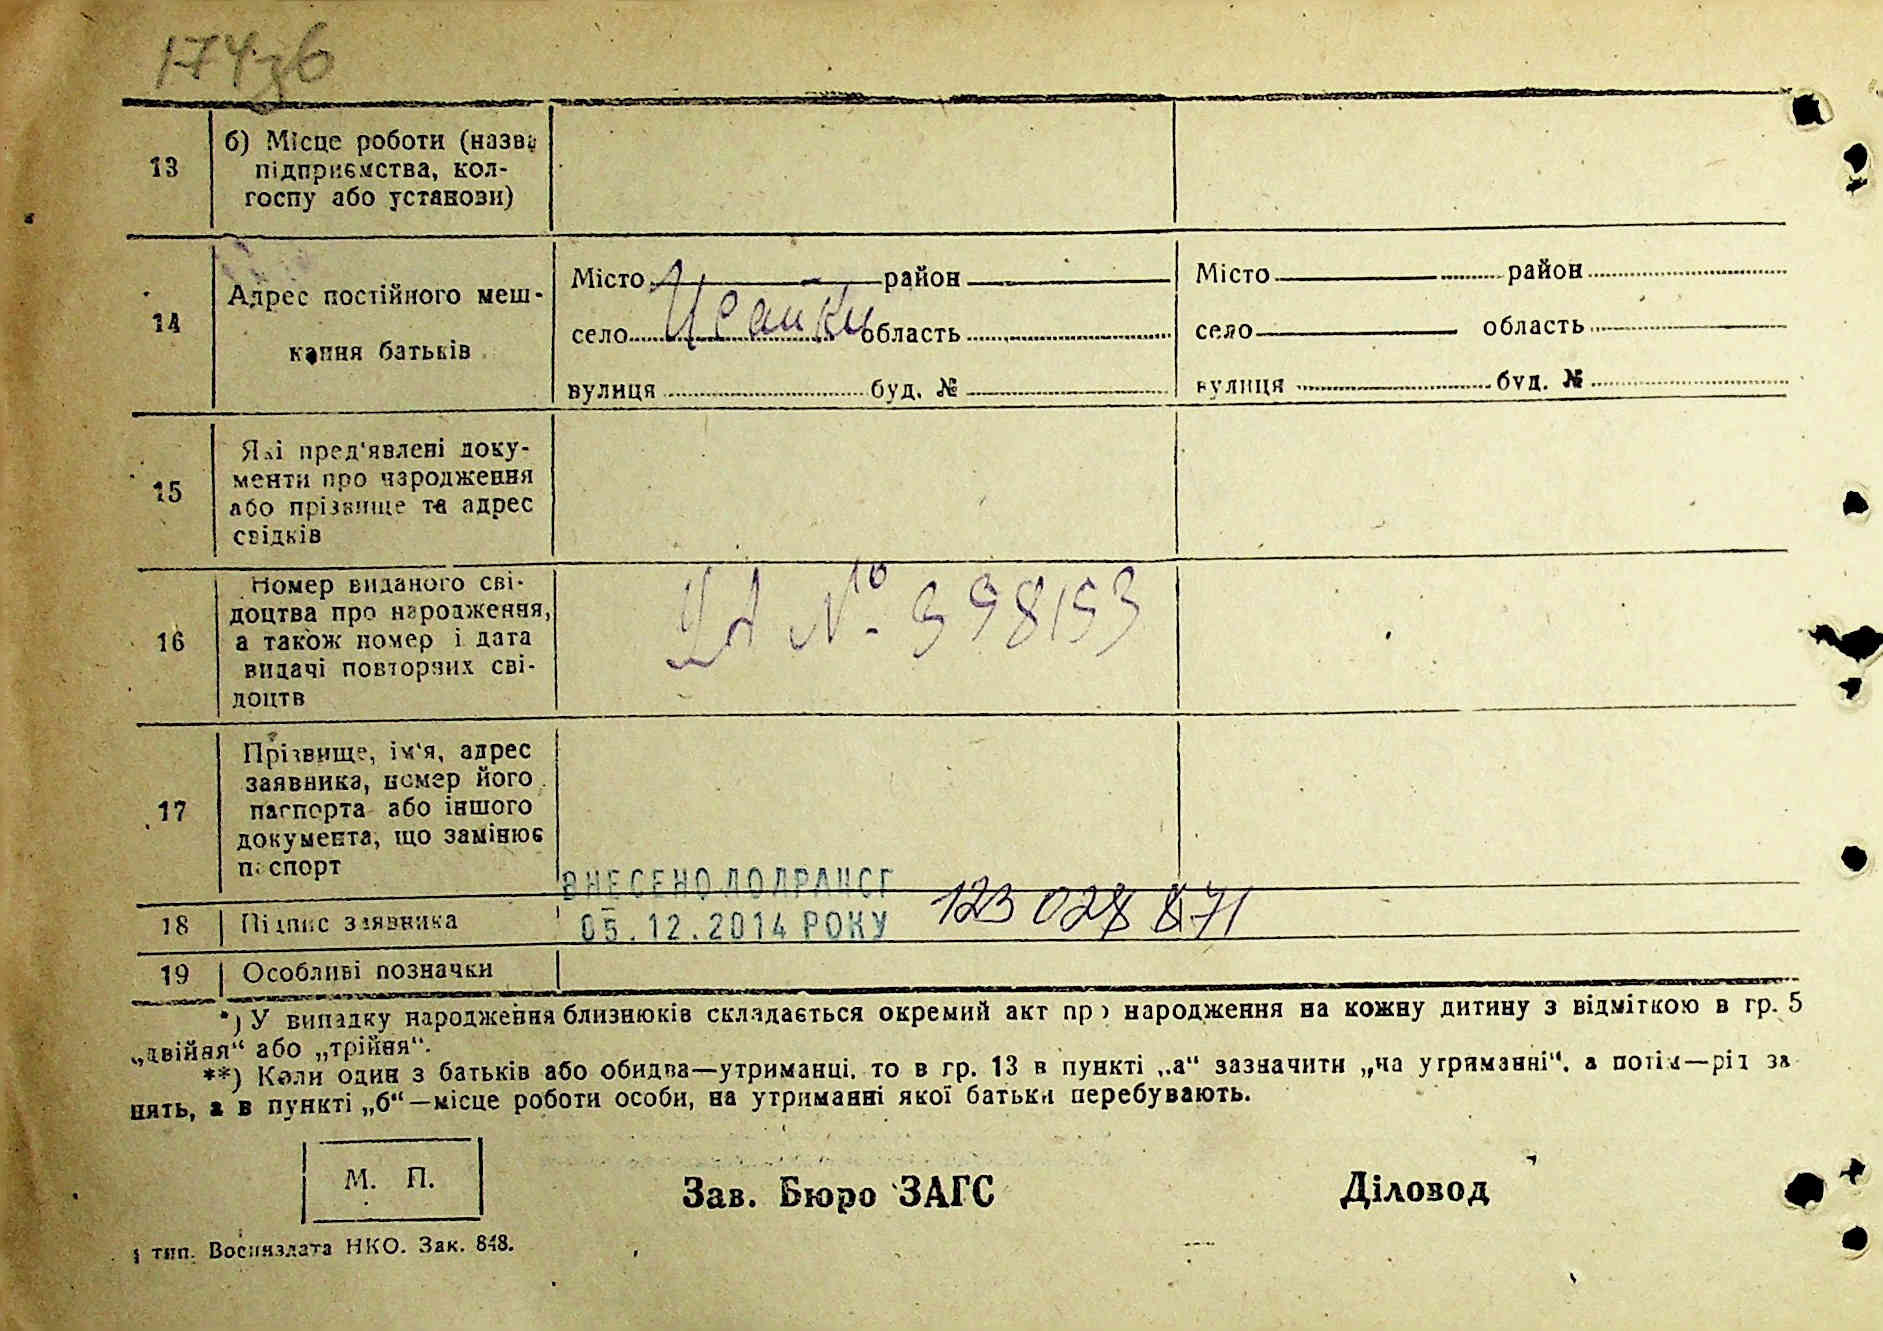 174зв
13
б) Місце роботи (назва
підприємства, кол-
госпу або установи)
14
Адрес постійного меш-
кання батьків
Місто район
село область
вулиця буд. №
Місто район
село область
вулиця буд. №
15
Які пред'явлені доку-
менти про народження
або прізвище та адрес
свідків
16
Номер виданого сві-
доцтва про народження,
а також номер і дата
видачі повторних сві-
доцтв
УА № 998153
17
Прізвище, ім'я, адрес
заявника, номер його
паспорта або іншого
документа, що замінює
паспорт
18
Підпис заявника
ВНЕСЕНО ДО ДРАЦСГ
05.12.2014 РОКУ
19
Особливі позначки
*) У випадку народження близнюків складається окремий акт про народження на кожну дитину з відміткою в гр. 5
„двійня“ або „трійня“.
**) Коли один з батьків або обидва—утриманці, то в гр. 13 в пункті „а“ зазначити „на утриманні“, а потім—рід за
нять, а в пункті „б“—місце роботи особи, на утриманні якої батьки перебувають.
М. П.
Зав. Бюро ЗАГС
Діловод
тип. Воениздата НКО. Зак. 848.